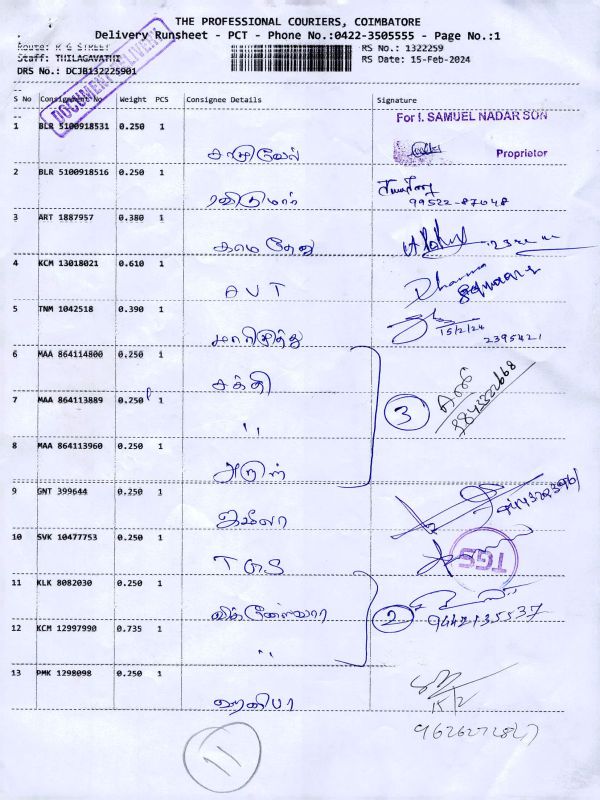 THE PROFESSIONAL COURIERS, COIMBATORE
Delivery Runsheet - PCT - Phone No.:0422-3505555 - Page No.:1
Route: K G STREET
RS No.: 1322259
Staff: THILAGAVATHI
RS Date: 15-Feb-2024
DRS No.: DCJB132225901
DOCUMENT DELIVERY
S No Consignment No Weight PCS Consignee Details Signature
For I. SAMUEL NADAR SON
1 BLR 5100918531 0.250 1
சாமுவேல்
Proprietor
2 BLR 5100918516 0.250 1
ரவிகுமார்
99522-87048
3 ART 1887957 0.380 1
காமதேனு
4 KCM 13018021 0.610 1
AVT
Dharma
5 TNM 1042518 0.390 1
மாரிமுத்து
15/2/24
2395421
6 MAA 864114800 0.250 1
சக்தி
7 MAA 864113889 0.250 1
"
3
8 MAA 864113960 0.250 1
அருள்
9 GNT 399644 0.250 1
10 SVK 10477753 0.250 1
TGS
TGS
11 KLK 8082030 0.250 1
விக்னேஸ்வரா
2
9442135537
12 KCM 12997990 0.735 1
"
13 PMK 1298098 0.250 1
ஹனிபா
15/2
11